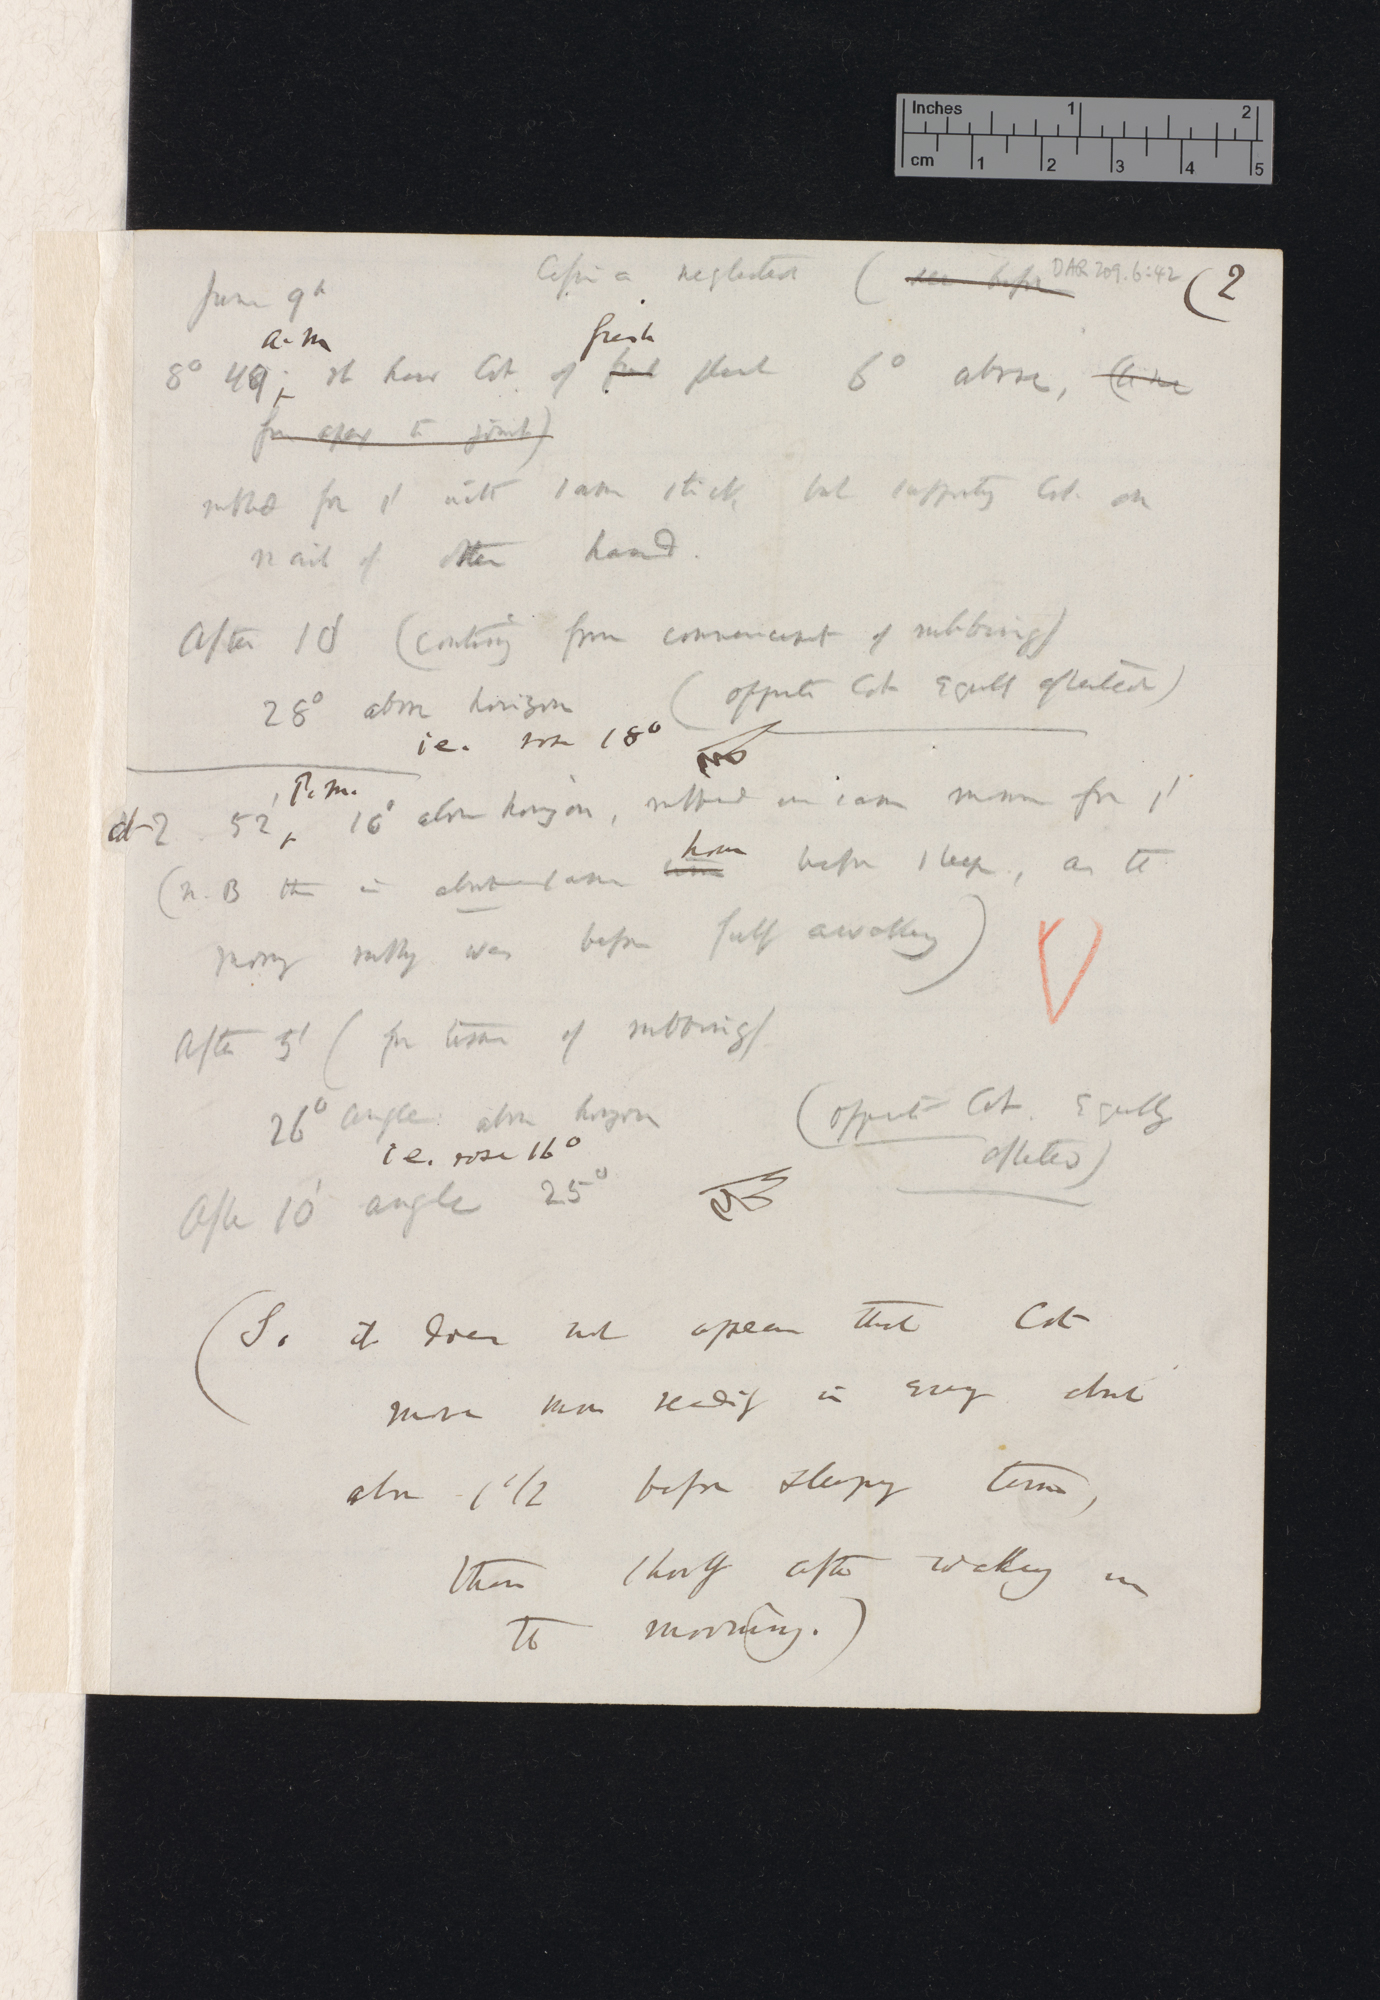 Inches 1 2
cm 1 2 3 4 5
Cassia neglecta ( see before DAR 209.6:42 (2
June 9th
a.m fresh
8° 49'; Cot. of plant 6° above,
from apex to joint)
rubbed for 1' with same stick, but supporting Cot. on
nail of other hand.
After 10' (counting from commencement of rubbing)
28° above horizon (opposite Cot. equally affected)
i.e. rose 18°
P.m.
at 2 52', 10° above horizon, rubbed in same manner for 1'
hour
(N.B this is about same before sleep, as the
morning rubbing was before full awaking)
After 5' (for time of rubbing)
26° angle above horizon (opposite Cot. equally
i.e. rose 16° affected)
After 10' angle 25°
(So it does not appear that Cot
move more readily in evening about
above 1 1/2 before sleeping time,
than shortly after waking in
the morning.)